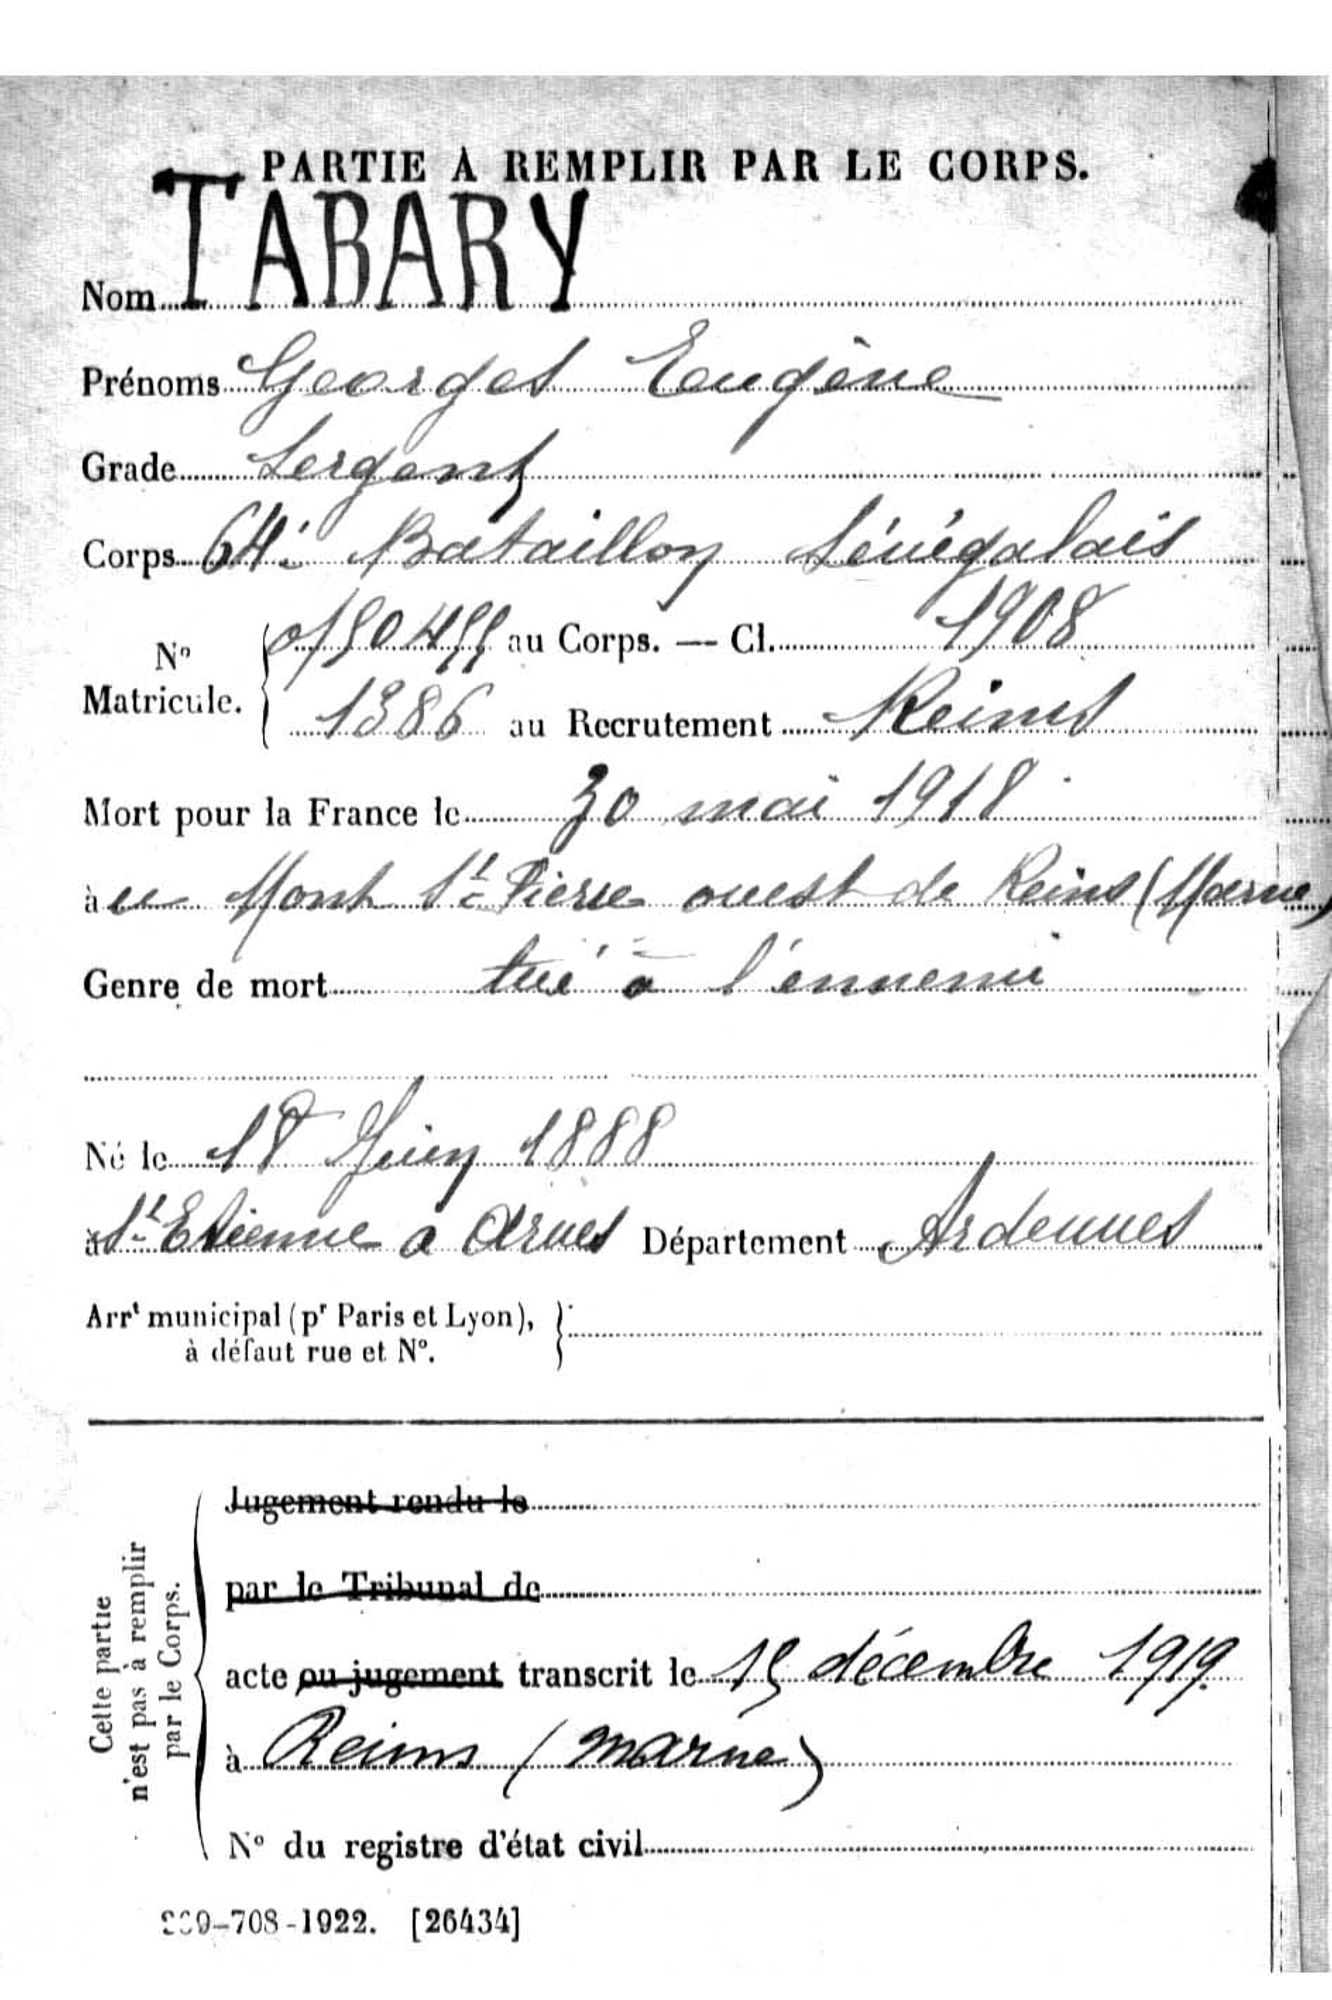 PARTIE À REMPLIR PAR LE CORPS.
Nom TABARY
Prénoms Georges Eugène
Grade Sergent
Corps 64e Bataillon Sénégalais
No Matricule. { au Corps. — Cl. 1908
1386 au Recrutement Reims
Mort pour la France le 30 mai 1918
à u Mont St Pierre ouest de Reims (Marne)
Genre de mort tué à l'ennemi
Né le 18 Juin 1888
à St Etienne à Arnes Département Ardennes
Arrt municipal (pr Paris et Lyon), }
à défaut rue et No.
Cette partie
n'est pas à remplir
par le Corps.
Jugement rendu le
par le Tribunal de
acte ou jugement transcrit le 15 décembre 1919
à Reims (Marne)
No du registre d'état civil
-708-1922. [26434]